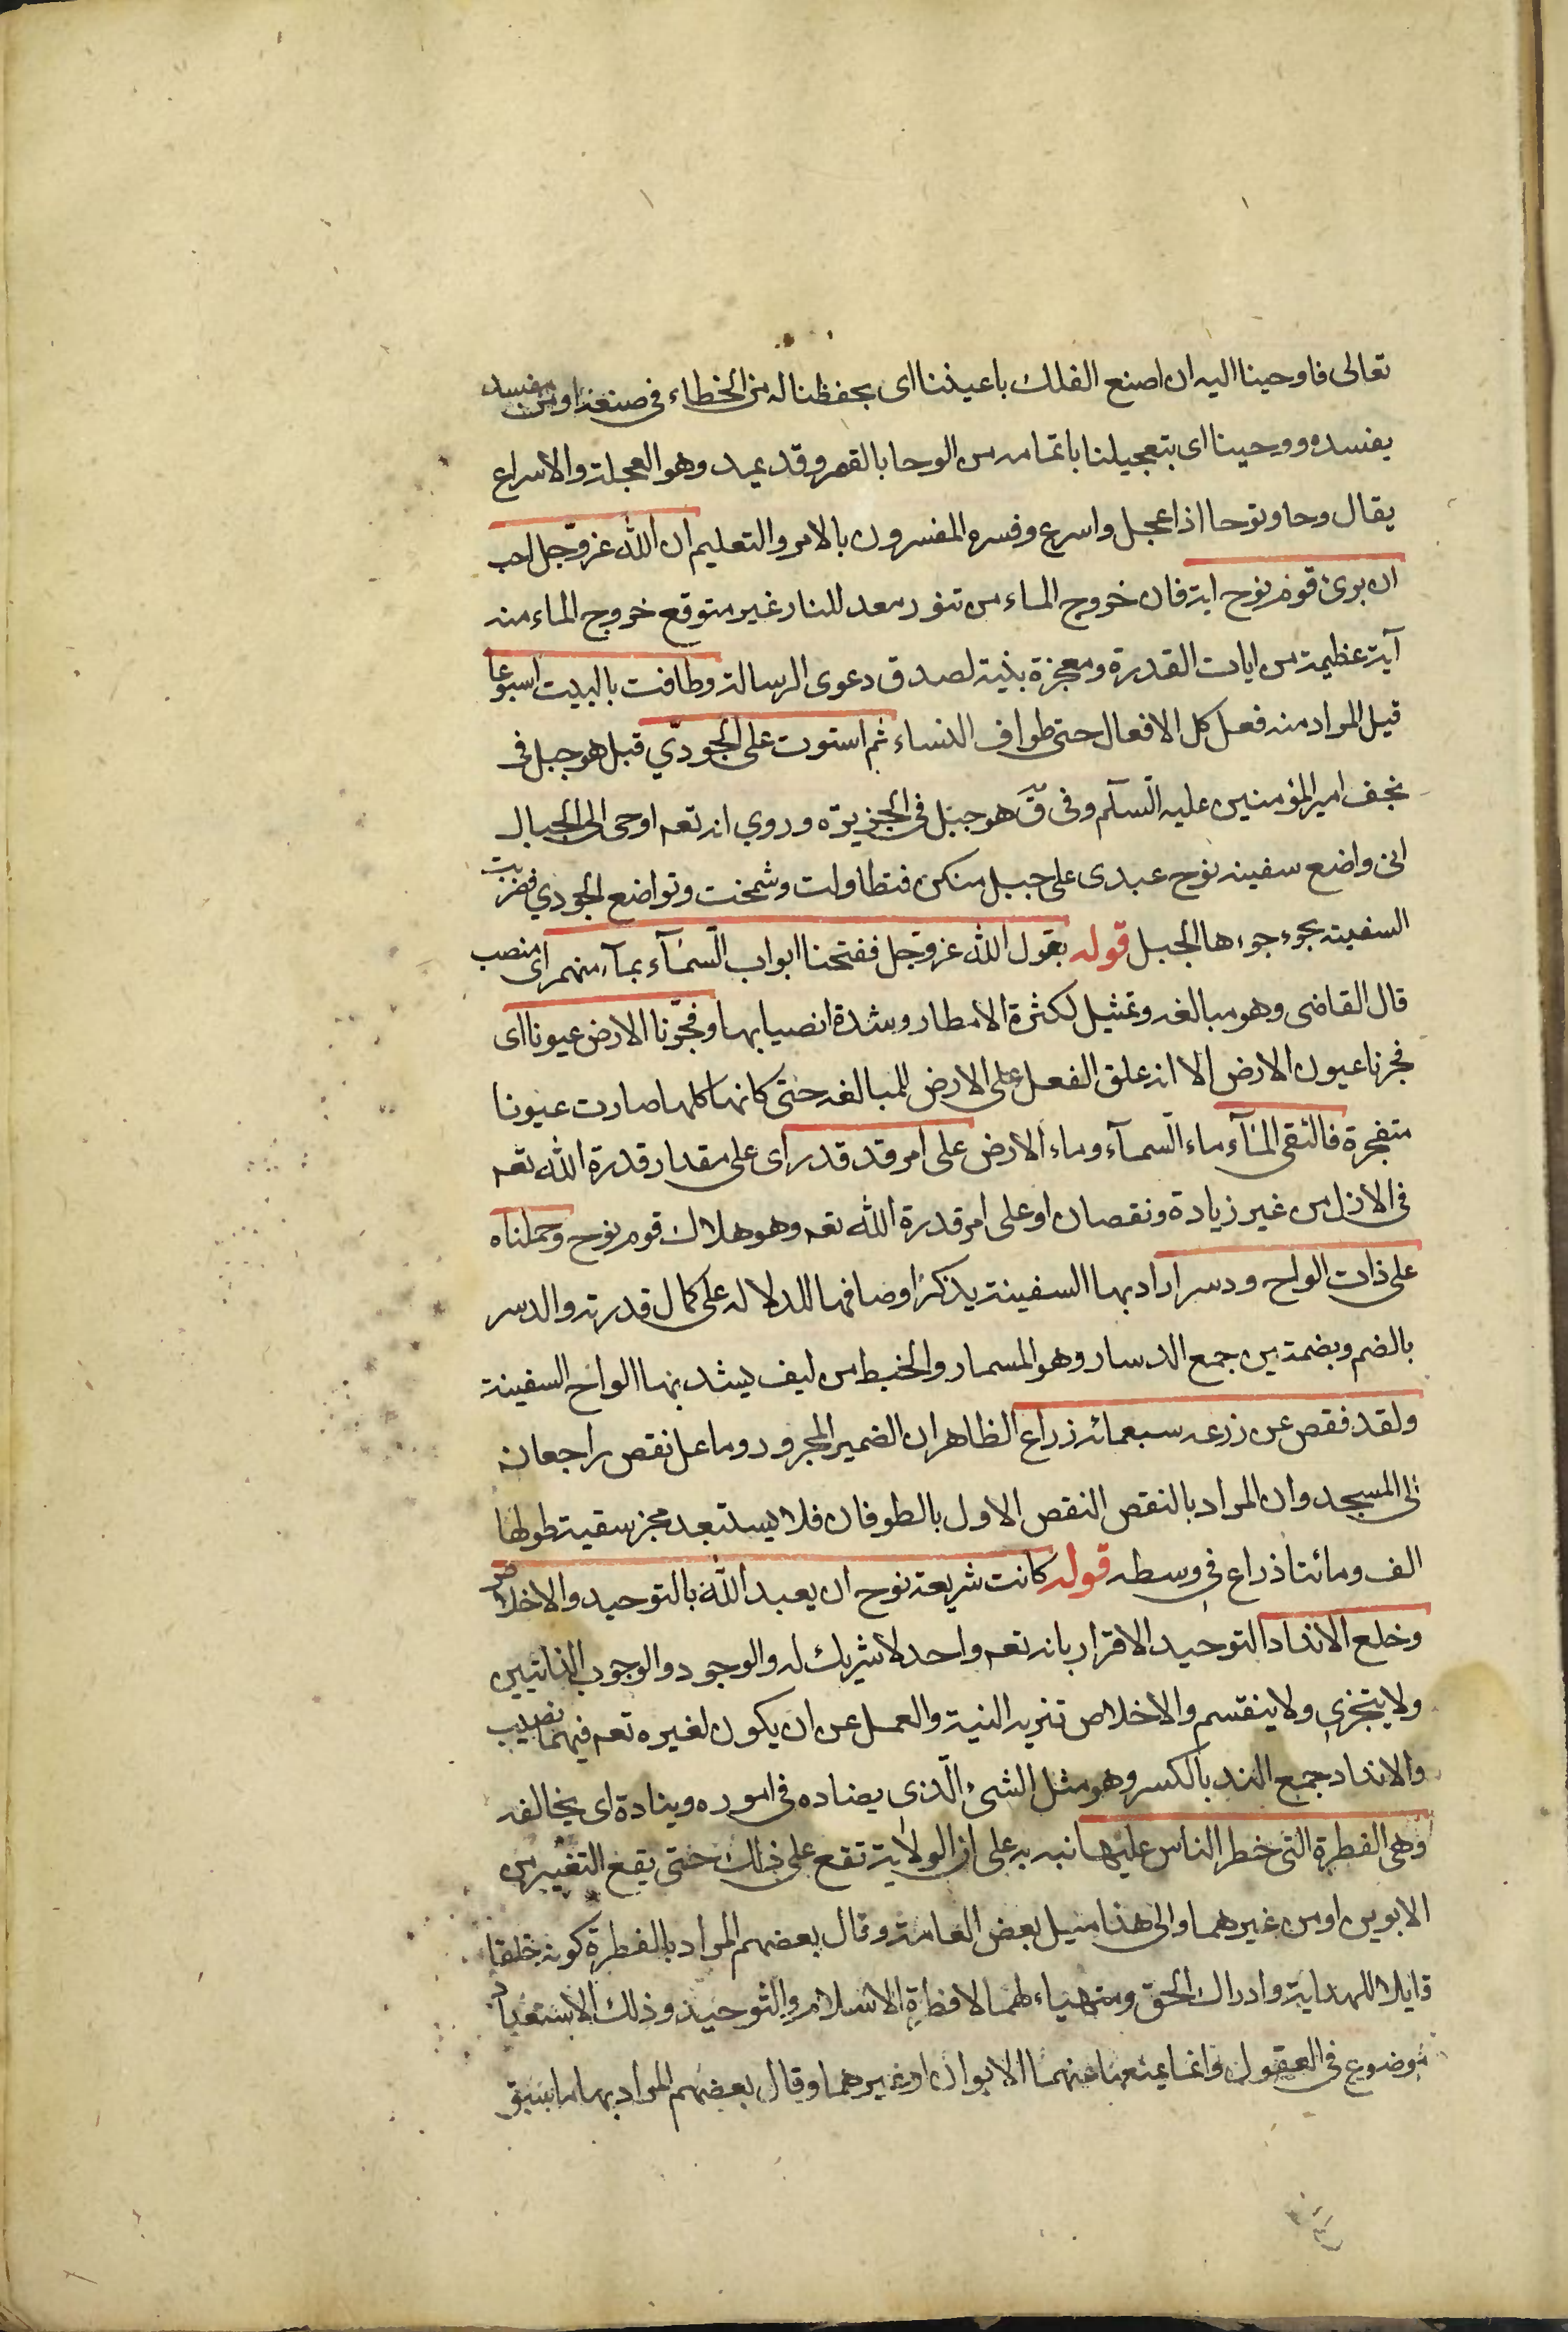 تعالى فاوحينا اليه ان اصنع الفلك باعيننا اى بحفظنا له من الخطاء فى صنعته او من مفسد
يفسده ووحينا اى بتعجيلنا باتمامه من الوحا بالقصر وقد يمد وهو العجلة والاسراع
يقال وحا وتوحا اذا عجل واسرع وفسره المفسرون بالامر والتعليم ان الله عز وجل احب
ان يرى قوم نوح اية فان خروج الماء من تنور معد للنار غير متوقع خروج الماء منه
آية عظيمة من ايات القدرة ومعجزة بينة لصدق دعوى الرسالة وطافت بالبيت اسبوعا
قيل المراد منه فعل كل الافعال حتى طواف النساء ثم استوت على الجودّي قيل هو جبل فى
نجف امير المؤمنين عليه السّلم وفى ق هو جبل فى الجزيرة وروي انه تعه اوحى الى الجبال
انى واضع سفينه نوح عبدى على جبل منكن فتطاولت وشمخت وتواضع الجودي فضربت
السفينه بجوءجوءها الجبل قوله بقول الله عز وجل ففتحنا ابواب السّمآء بمآء منهمر اى منصب
قال القاضى وهو مبالغه وتمثيل لكثرة الامطار وشدة انصبابها وفجّرنا الارض عيونا اى
فجرنا عيون الارض الا انه علق الفعل على الارض للمبالغه حتى كانها كلها صارت عيونا
متفجرة فالتقى المآء ماء السّمآء وماء الارض على امر قد قدر اى على مقدار قدرة الله تعه
فى الازل من غير زيادة ونقصان او على امر قدرة الله تعه وهو هلاك قوم نوح وحملناه
على ذات الواح ودسر اراد بها السفينة يذكر اوصافها للدلاله على كمال قدرته والدسر
بالضم وبضمتين جمع الدسار وهو المسمار والخيط من ليف يشد بها الواح السفينة
ولقد فقص عن زرعه سبعمائه زراع الظاهر ان الضمير المجرور وما عل نقص راجعان
الى المسجد وان المراد بالنقص النقص الاول بالطوفان فلا يستبعد مجز سفينة طولها
الف ومائتا ذراع فى وسطه قوله كانت شريعة نوح ان يعبد الله بالتوحيد والاخلاص
وخلع الانداد التوحيد الاقرار بانه تعه واحد لا شريك له والوجود والوجوب الذاتيين
ولا يتجزى ولا ينقسم والاخلاص تنزيه النية والعمل عن ان يكون لغيره تعه فيهما نصيب
والانداد جمع الند بالكسر وهو مثل الشىء الّذى يضاده فى اموره وينادة اى يخالفه
وهى الفطرة التى خطر الناس عليها نبه به على ان الولاية تقع على ذلك حتى يقع التغيير من
الابوين او من غيرهما والى هذا ميل بعض العامة وقال بعضهم المراد بالفطرة كونه خلقا
قابلا للهداية وادراك الحق ومتهياء لهما لا فطرة الاسلام والتوحيد وذلك الاستعداد
موضوع فى العقول وانما يمنعها عنهما الابوان او غيرهما وقال بعضهم المراد بها ما سبق